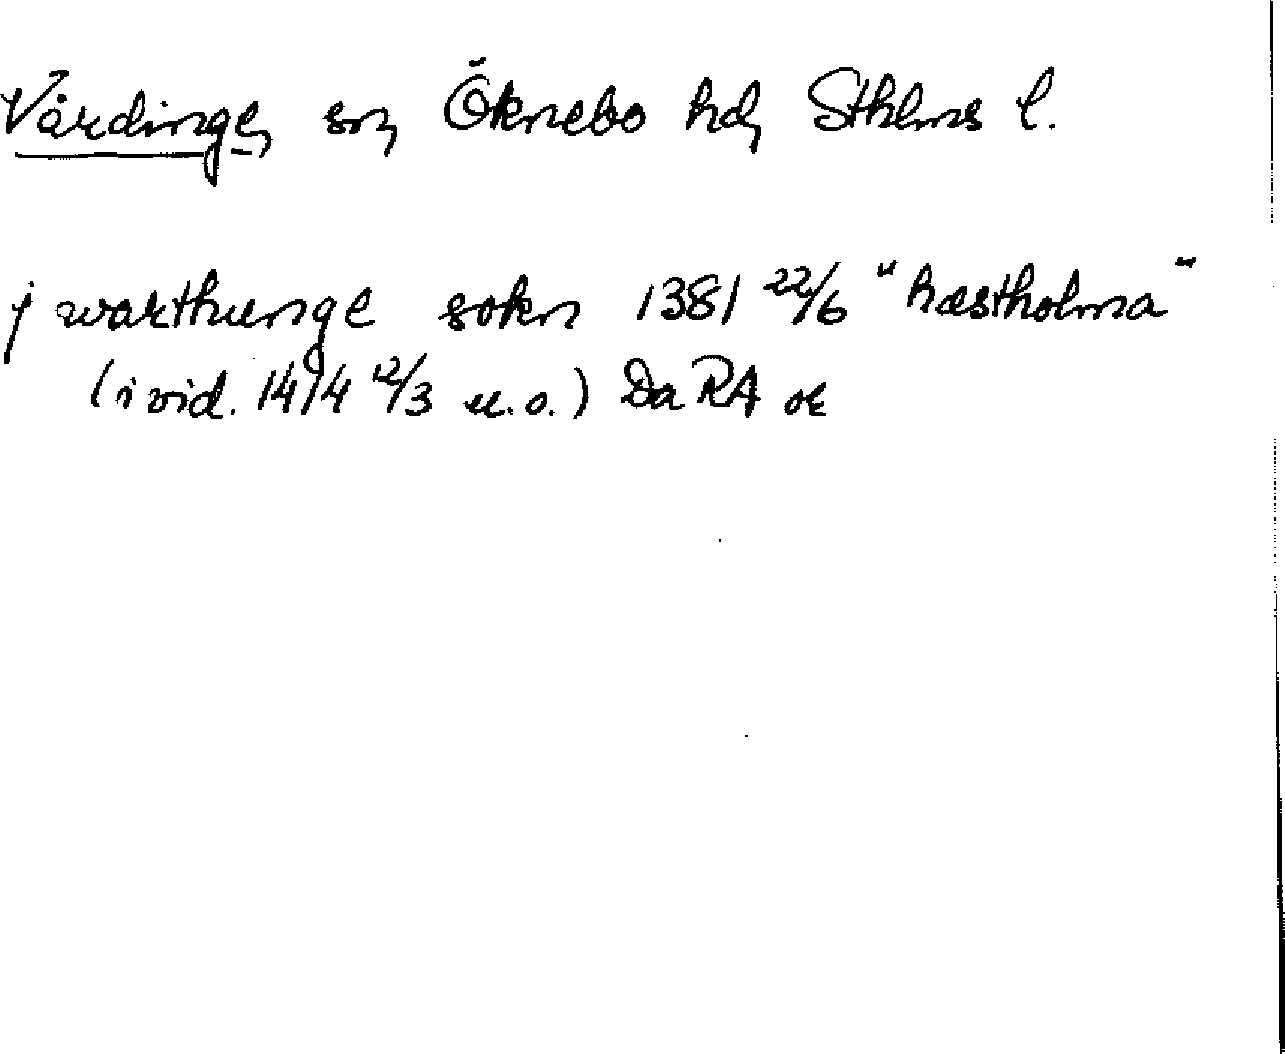 Vårdinge, sn, Öknebo hd, Sthlms l.
j warthunge sokn 1381 22/6 "hæstholma"
(i vid. 1414 12/3 u.o.) Da RA or